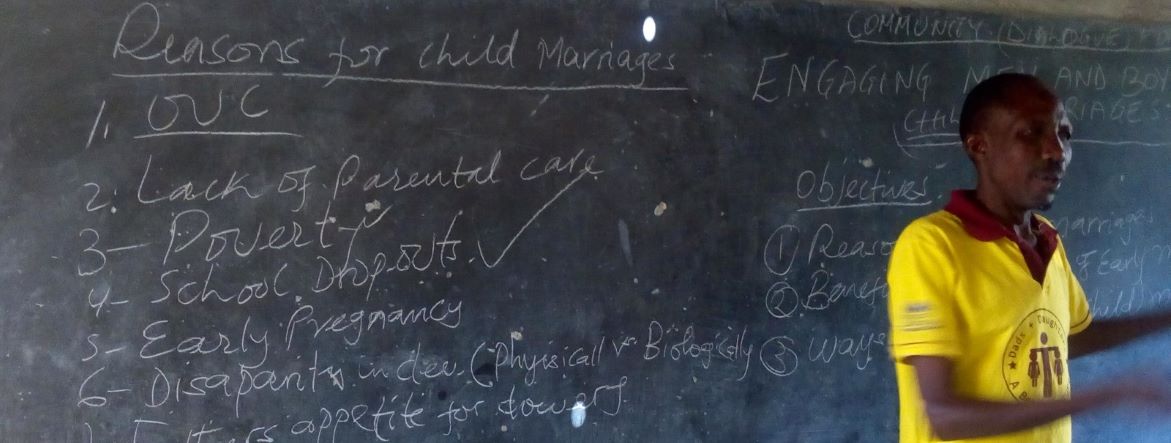 Reasons for child Marriages
1. OVC
2. Lack of Parental care
3- Poverty
4- School Dropouts.
5- Early Pregnancy
6- Disapanty in dev. (Physicall vs Biologically
appetite for dowery
COMMUNITY (DIALOGUE)
ENGAGING MEN AND BOY
CHIL RIAGES
Objectives
① Reaso marriages
② Benef f Early
③ Ways child
Dads + Daugh
A B